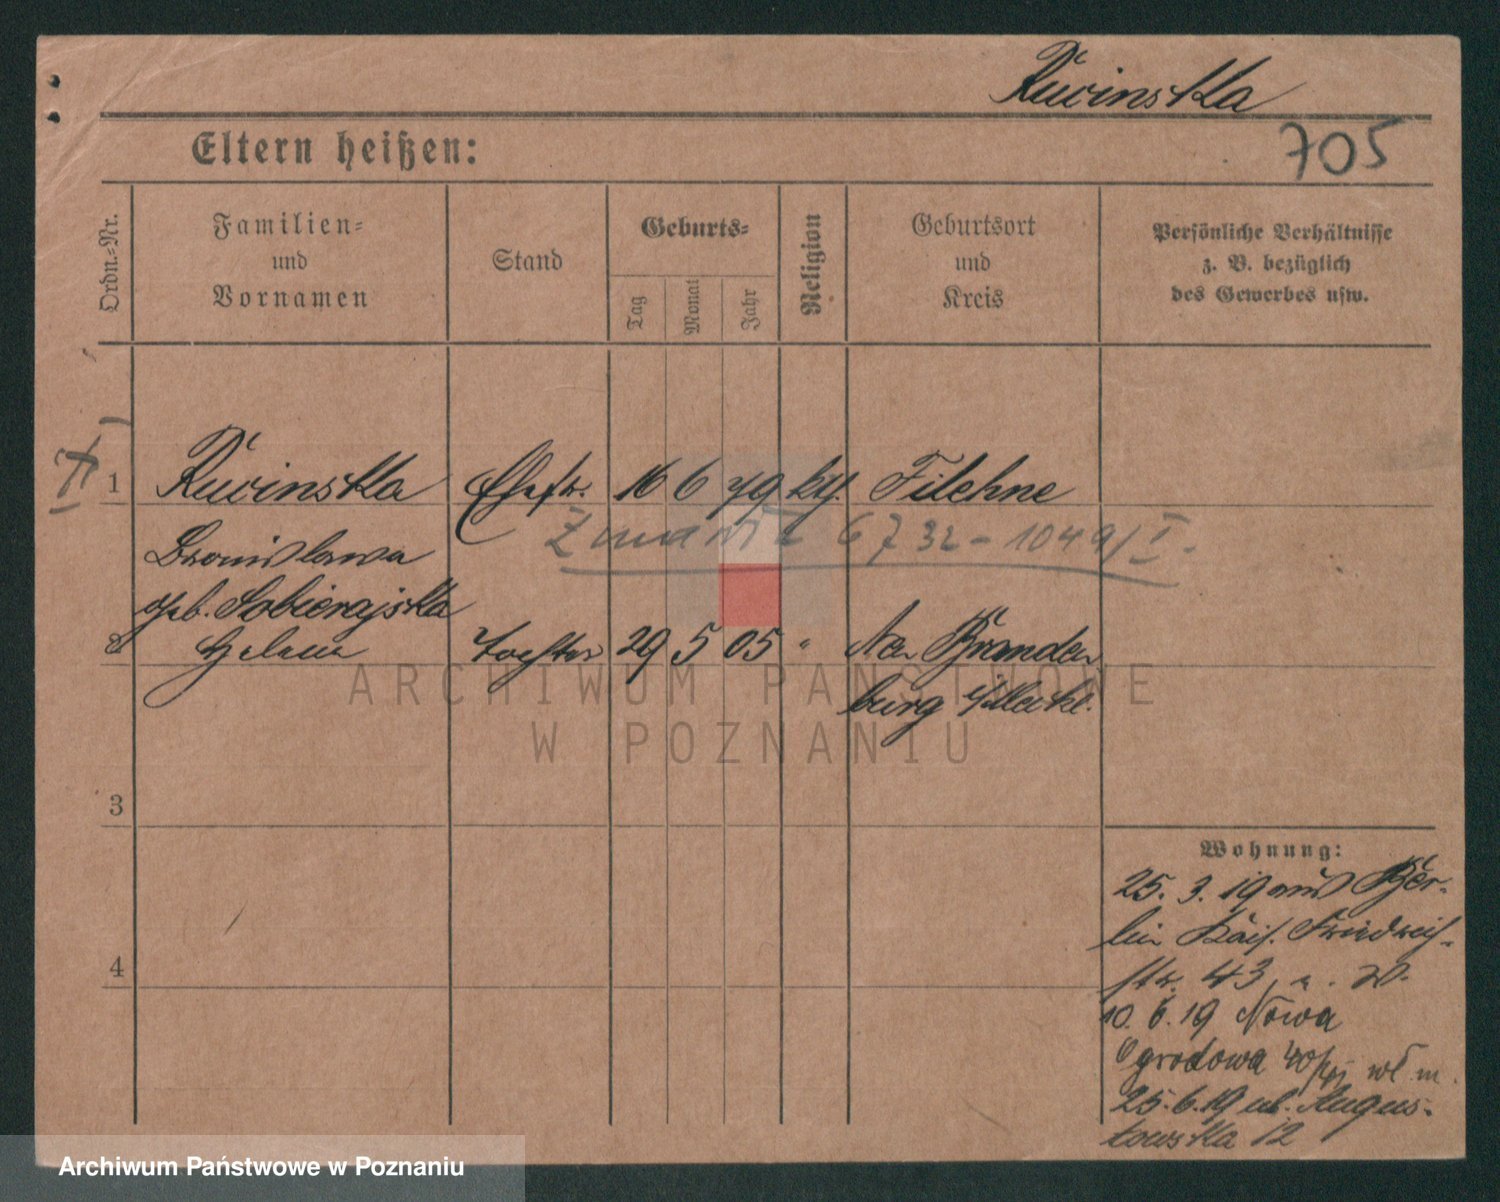 Ruvinska
705
Eltern heißen:
Ordn.-Nr.
Familien-
und
Vornamen
Stand
Geburts-
Tag
Monat
Jahr
Religion
Geburtsort
und
Kreis
Persönliche Verhältnisse
z. B. bezüglich
des Gewerbes usw.
1 Ruvinska Ehefr. 16 6 79 kth. Filehne
6732-1049/I
Bronislawa
geb. Sobierajska
2 Helene Tochter 29 5 05 " Neu Branden
burg
3
4
Wohnung:
25. 3. 19 aus Ber-
lin Kais. Friedrich-
str. 43
10. 6. 19 Nowa
Ogrodowa 40
25. 6. 19 ul. Augus-
towska 12
ARCHIWUM PAŃSTWOWE
W POZNANIU
Archiwum Państwowe w Poznaniu